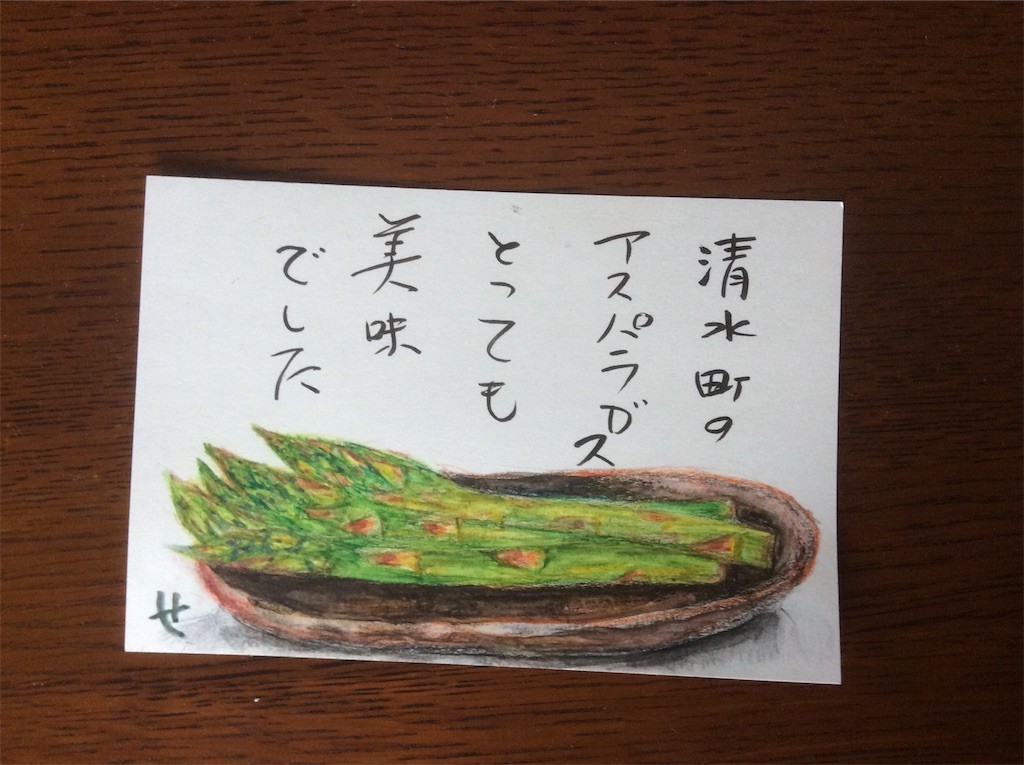 清水町の
アスパラガス
とっても
美味
でした
せ